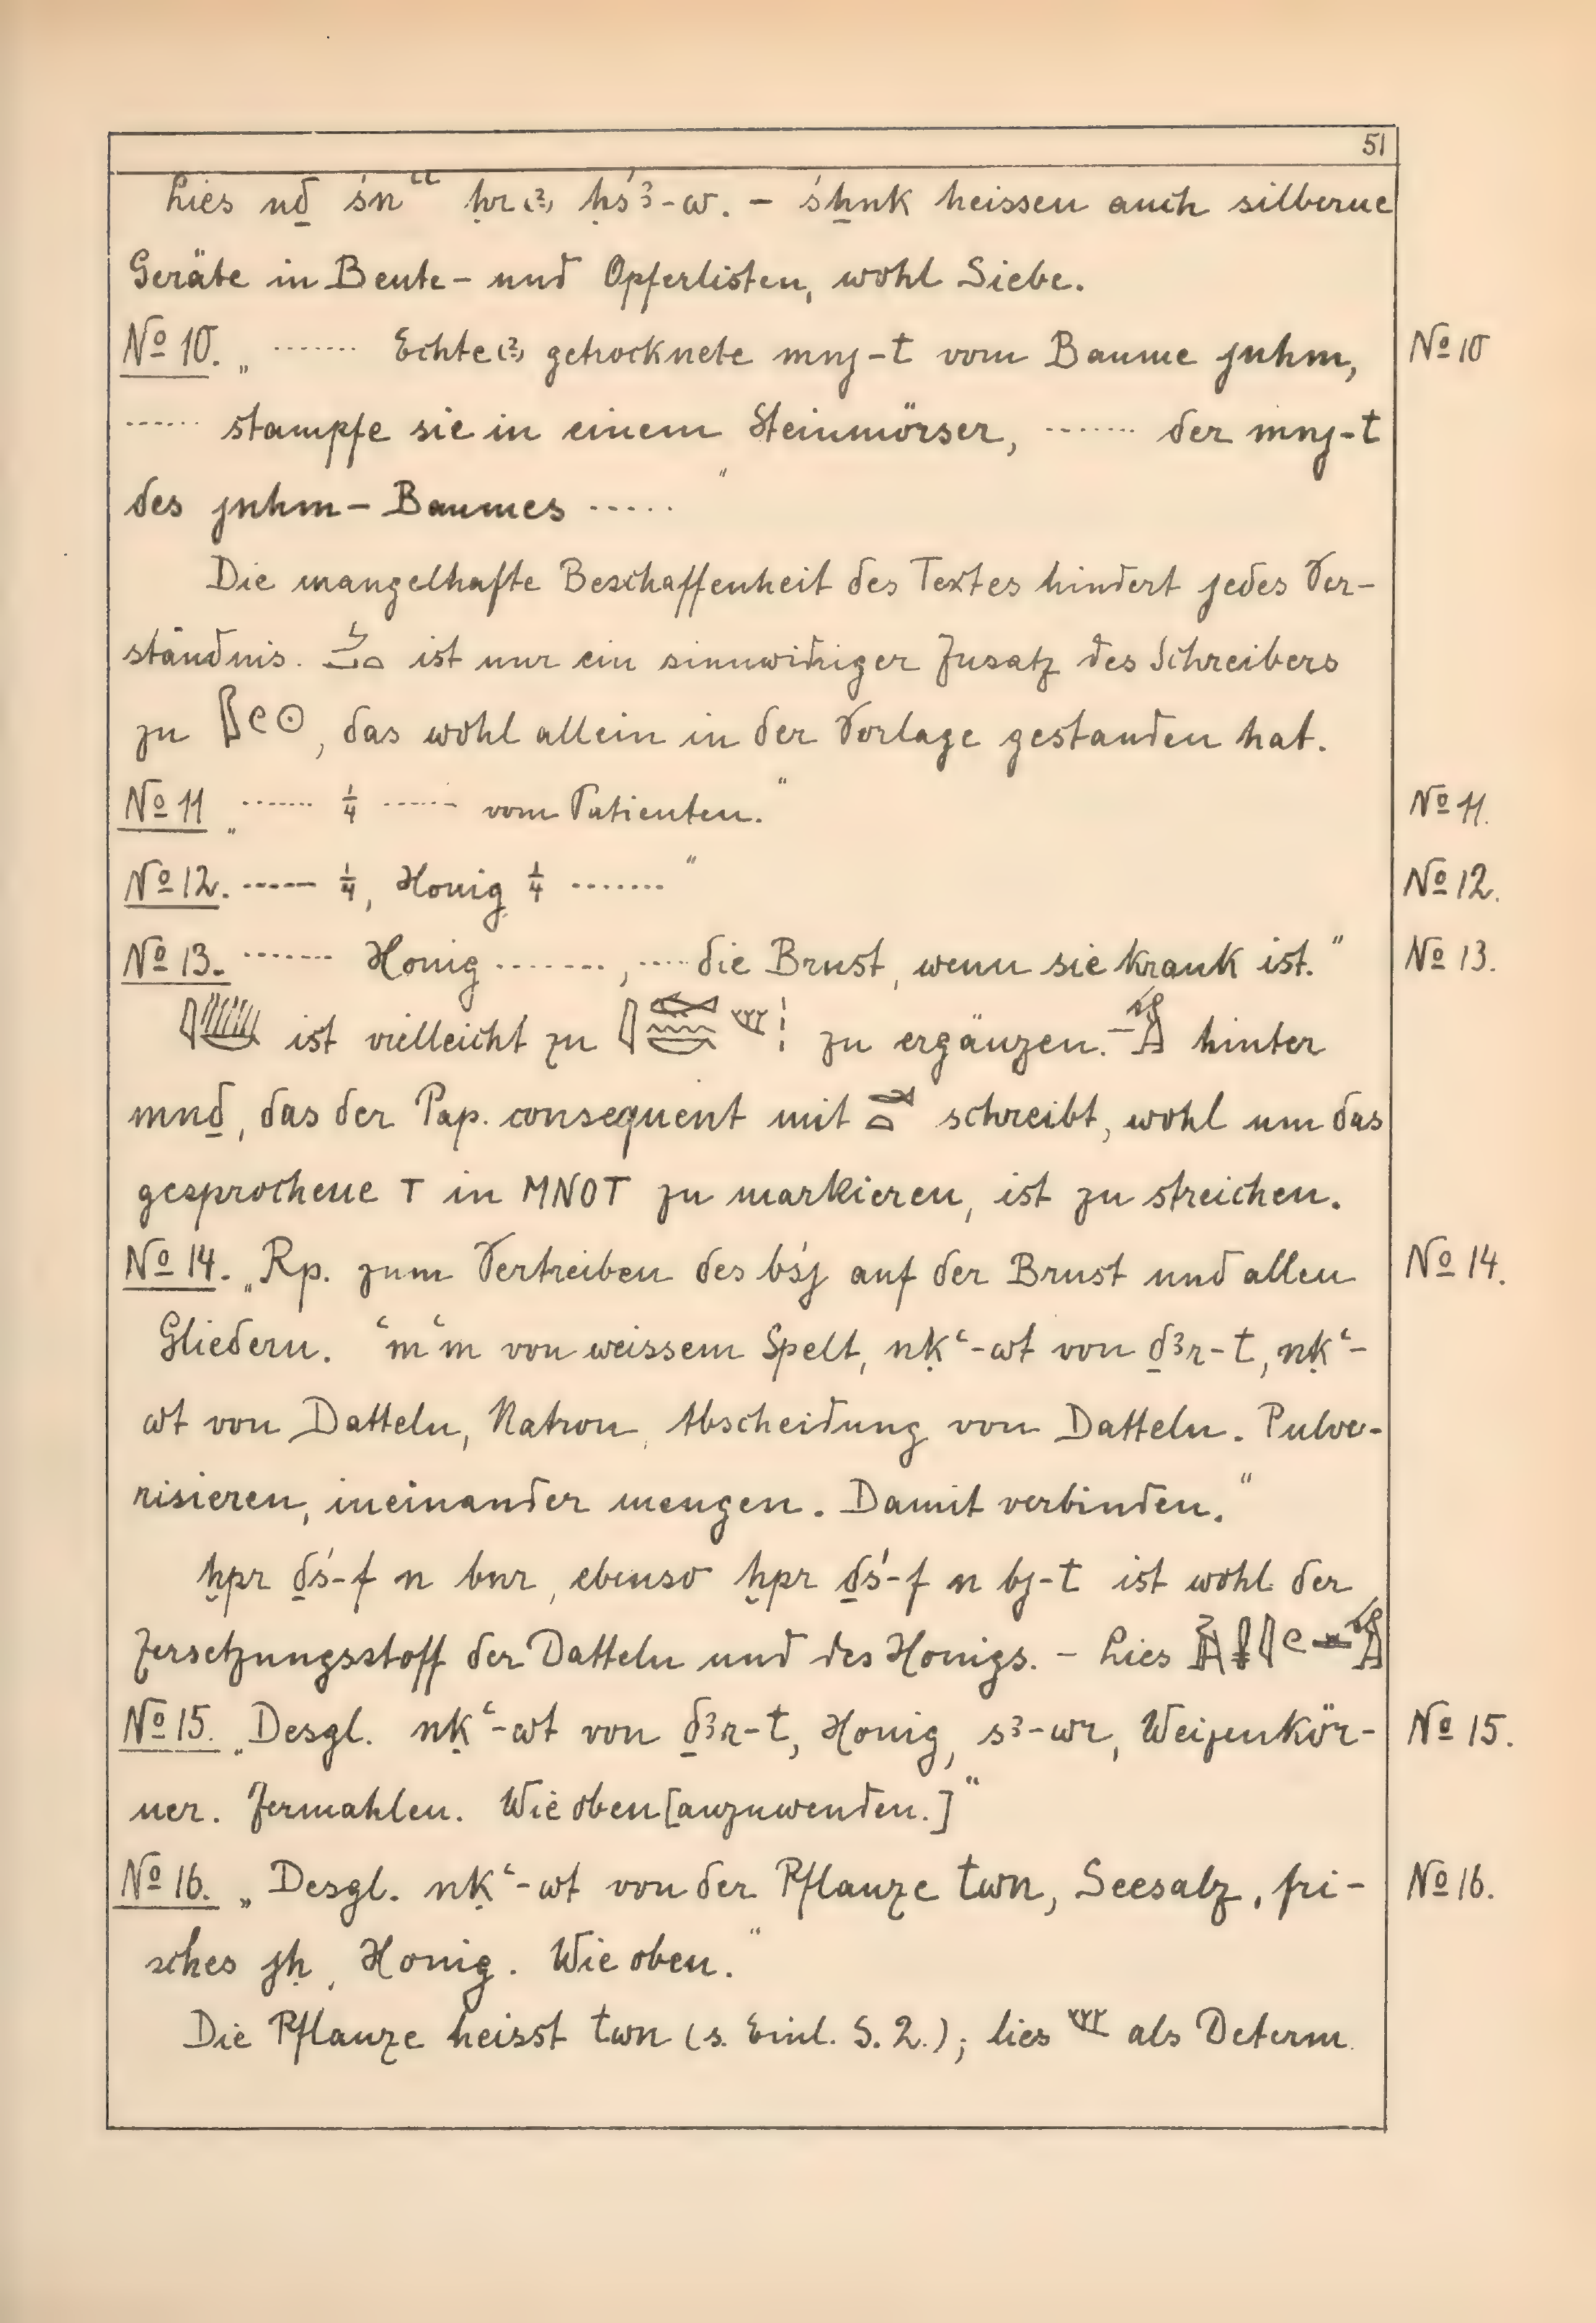 51
Lies nḏ śnʿʿ ḥr(?) ḥś3-w. – śẖnk heissen auch silberne
Geräte in Beute- und Opferlisten, wohl Siebe.
No 10. „ ....... Echte(?) getrocknete mnj-t vom Baume jnhm, No 10
...... stampfe sie in einem Steinmörser, ....... der mnj-t
des jnhm-Baumes ....."
Die mangelhafte Beschaffenheit des Textes hindert jedes Ver-
ständnis. ist nur ein sinnwidriger Zusatz des Schreibers
zu , das wohl allein in der Vorlage gestanden hat.
No 11 „ ....... 1/4 ....... vom Patienten." No 11.
No 12. ...... 1/4, Honig 1/4 ........" No 12.
No 13. ....... Honig ........, .... die Brust, wenn sie krank ist." No 13.
ist vielleicht zu zu ergänzen. – hinter
mnḏ, das der Pap. consequent mit schreibt, wohl um das
gesprochene T in MNOT zu markieren, ist zu streichen.
No 14. „Rp. zum Vertreiben des bśj auf der Brust und allen No 14.
Gliedern. ʿmʿm von weissem Spelt, nḳʿ-wt von ḏ3r-t, nḳʿ-
wt von Datteln, Natron, Abscheidung von Datteln. Pulve-
risieren, ineinander mengen. Damit verbinden."
ḫpr ḏś-f n bnr, ebenso ḫpr ḏś-f n bj-t ist wohl der
Zersetzungsstoff der Datteln und des Honigs. – Lies
No 15. „Desgl. nḳʿ-wt von ḏ3r-t, Honig, s3-wr, Weizenkör- No 15.
ner. Zermahlen. Wie oben [anzuwenden.]"
No 16. „Desgl. nḳʿ-wt von der Pflanze twn, Seesalz, fri- No 16.
sches jḥ, Honig. Wie oben."
Die Pflanze heisst twn (s. Einl. S. 2.); lies als Determ.